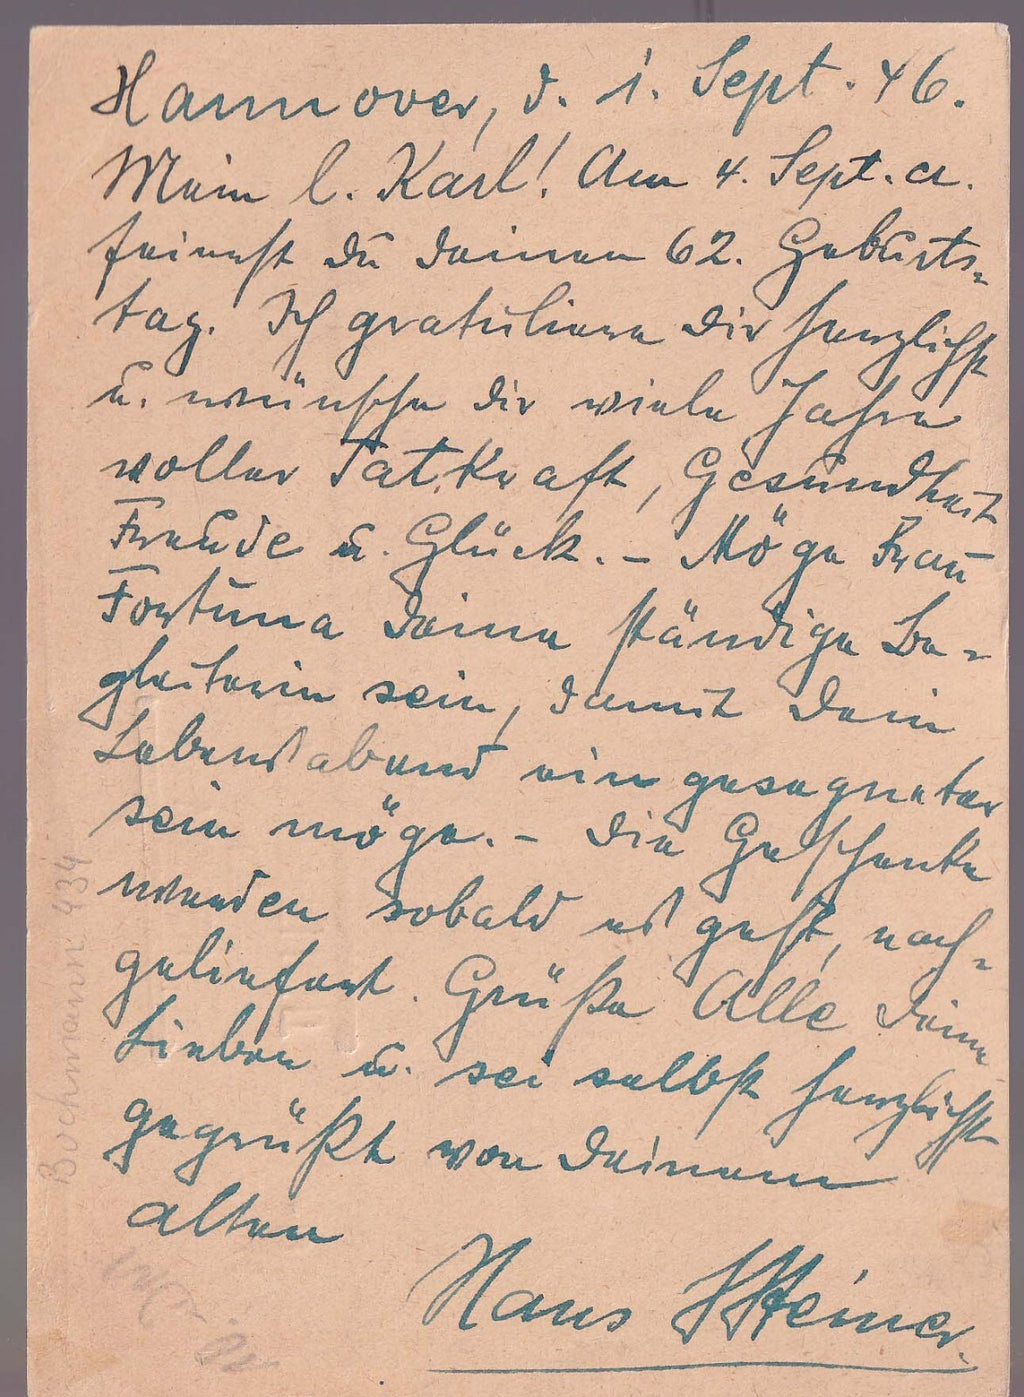 Hannover, d. 1. Sept. 46.
Mein l. Karl! Am 4. Sept. a.
feierst du deinen 62. Geburts-
tag. Ich gratuliere dir herzlichst
u. wünsche dir viele Jahre
voller Tatkraft, Gesundheit
Freude u. Glück. – Möge Frau
Fortuna deine ständige Be-
gleiterin sein, damit dein
Lebensabend ein gesegneter
sein möge. – Die Geschenke
werden sobald es geht, nach-
geliefert. Grüße Alle deine
Lieben u. sei selbst herzlichst
gegrüßt von deinem
alten
Hans
Bochmann 434